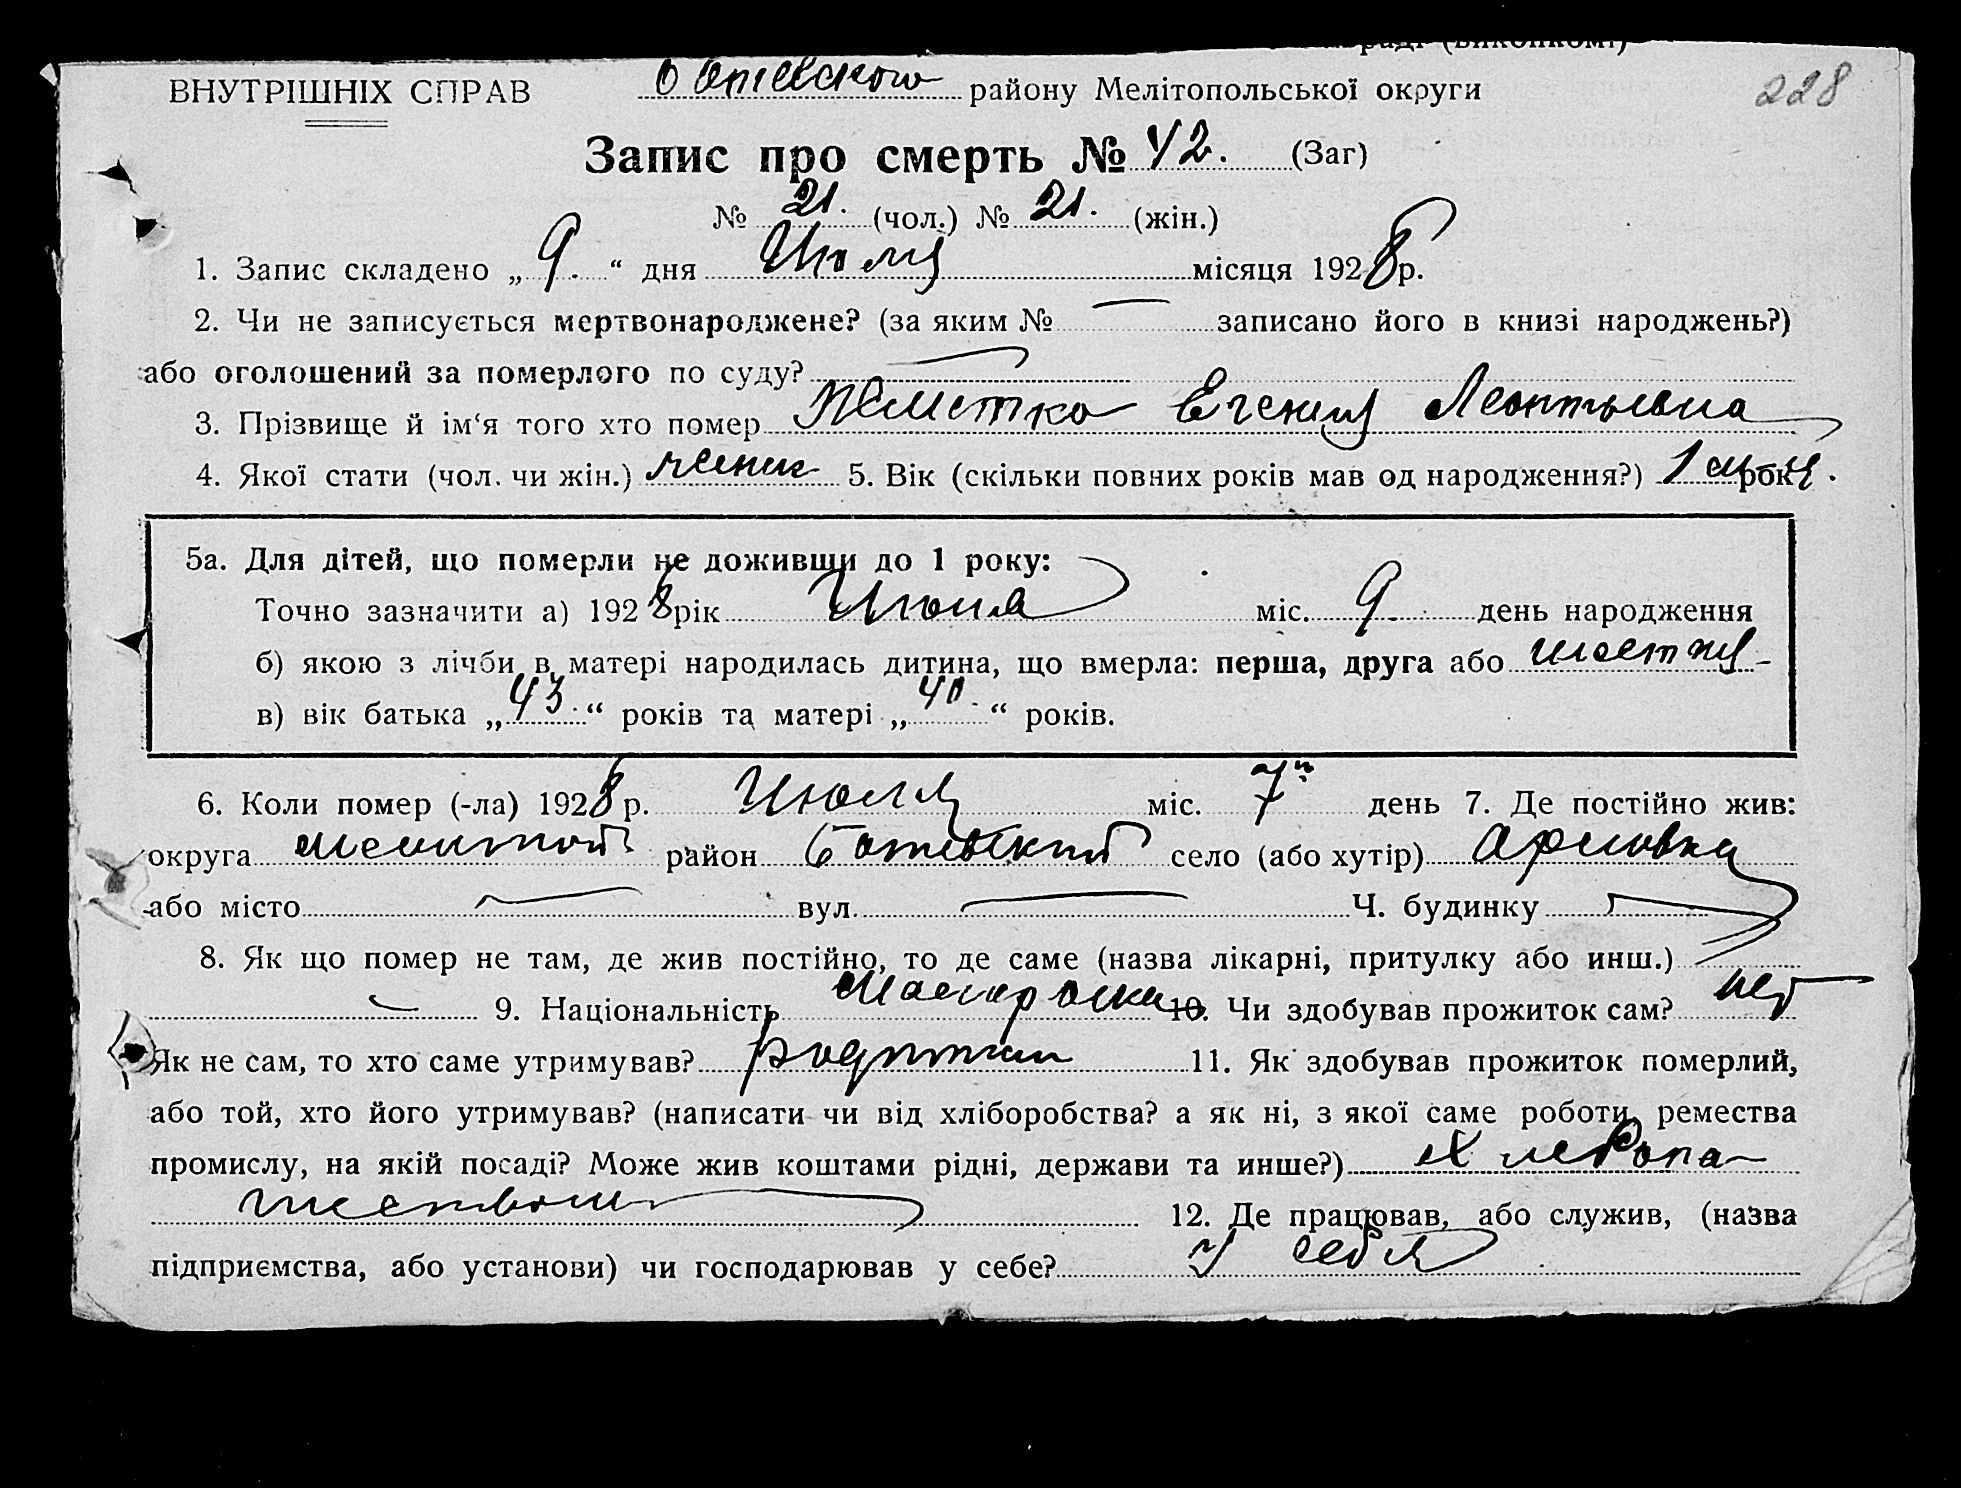 228
ВНУТРІШНІХ СПРАВ Ботиевского району Мелітопольської округи
Запис про смерть № 42. (Заг)
№ 21. (чол.) № 21. (жін.)
1. Запис складено „ 9. “ дня Июля місяця 1928 р.
2. Чи не записується мертвонароджене? (за яким № — записано його в книзі народжень?)
або оголошений за померлого по суду? —
3. Прізвище й ім‘я того хто помер Евгения Леонтьевна
4. Якої стати (чол. чи жін.) женск 5. Вік (скільки повних років мав од народження?) 1 рок
5а. Для дітей, що померли не доживши до 1 року:
Точно зазначити а) 1928 рік Июня міс. 9. день народження
б) якою з лічби в матері народилась дитина, що вмерла: перша, друга або шестая
в) вік батька „ 43 “ років та матері „ 40 “ років.
6. Коли помер (-ла) 1928 р. Июля міс. 7 день 7. Де постійно жив:
округа Мелитоп район Ботиевский село (або хутір)
або місто — вул. — Ч. будинку —
8. Як що помер не там, де жив постійно, то де саме (назва лікарні, притулку або инш.) —
— 9. Національність 10. Чи здобував прожиток сам? нет
Як не сам, то хто саме утримував? родители 11. Як здобував прожиток померлий,
або той, хто його утримував? (написати чи від хліборобства? а як ні, з якої саме роботи, ремества
промислу, на якій посаді? Може жив коштами рідні, держави та инше?) Хлебопа
шеством 12. Де працював, або служив, (назва
підприємства, або установи) чи господарював у себе? У себя